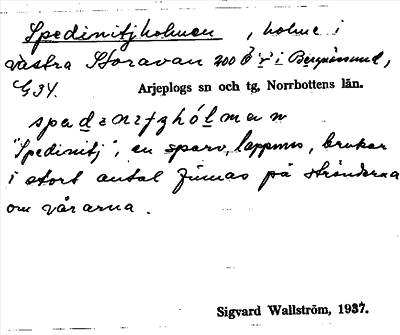 Spedinitjholmen, holme i
västra Storavan 200 Ö r i Bergnäsund,
G 34. Arjeplogs sn och tg, Norrbottens län.
spedənitjhólman
"Spedinitj", en sparv, lappmes, brukar
i stort antal finnas på stränderna
om vårarna.
Sigvard Wallström, 1937.